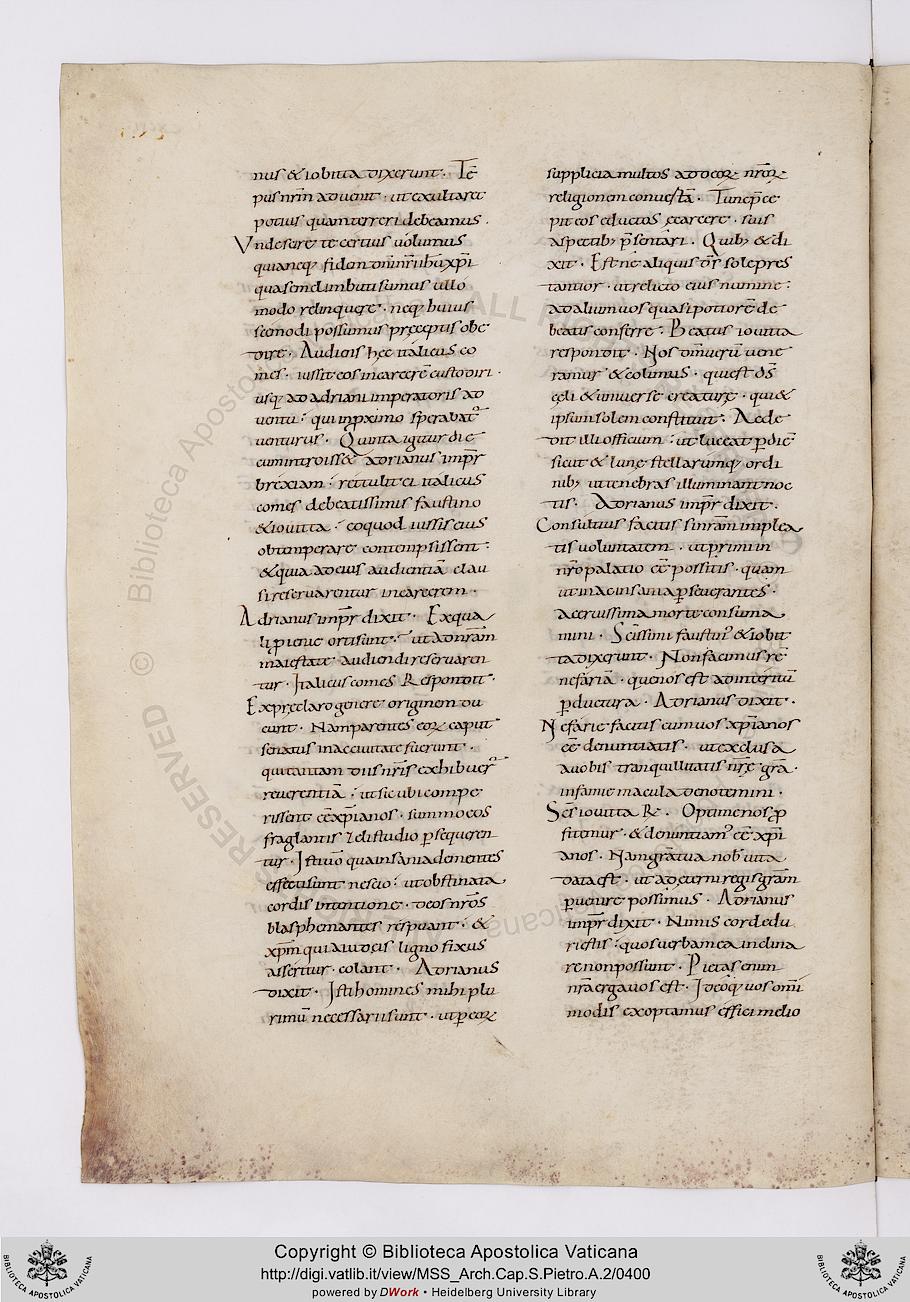 nus & iobitta dixerunt · Tē
pus nr̄m aduenit · ut exultare
potius quam terreri debeamus ·
Vnde sere te certius uolumus
quia neq; fidem dn̄i nr̄i ihū xp̄i
qua semel imbuti sumus ullo
modo relinquere · neq; huius
scemodi possumus pręceptis obe
dire · Audiens hęc italicus co
mes · iussit eos in carcerē custodiri ·
usq; ad adriani imperatoris ad
uentū · qui in p̄ximo sperabat᷒
uenturus · Quinta igitur die
cum introiss& adrianus imp̄r
brexiam · rettulit ei italicus
comes de beatissimis faustino
& iouitta · eo quod iussis eius
obtemperare contempsissent ·
& quia ad eius audientiā clau
si reseruarentur in carcerem ·
Adrianus imp̄r dixit · Ex qua
li genere orti sunt · ut ad nr̄am
maiestatē audiendi reseruaren
tur · Italicus comes Respondit ·
Ex pręclaro genere originem du
cunt · Nam parentes eoꝝ caput
senatus in ac ciuitate fuerunt ·
qui tantam diis nr̄is exhibuer᷒
reuerentiā · ut sicubi compe
rissent eē xp̄ianos · summo eos
fraglantis odii studio p̄sequeren
tur · Isti uō qua insania dementes
effecti sunt nescio · ut obstinata
cordis intentione · deos nr̄os
blasphemantes respuant · &
xp̄m qui a iudeis ligno fixus
asseritur · colant · Adrianus
dixit · Isti homines mihi plu
rimū necessarii sunt · ut p̄ eoꝝ
supplicia multos ad deoꝝ nr̄oꝝ
religionem conuertā · Tunc p̄ce
pit eos eductos ę carcere · suis
aspectib; p̄sentari · Quib; & di
xit · Est ne aliquis d̄s sole pres
tantior · ut relicto eius numine ·
ad alium uos quasi potiorē de
beatis conferre · Beatus iouitta
respondit · Nos dm̄ uerū uene
ramur & colimus · qui est d̄s
cęli & uniuersę creaturę · qui &
ipsum solem constituit · Ac de
dit illi officium · ut luceat p̄ diē
sicut & lunę stellarumq; ordi
nib; ut tenebras illuminant noc
tis · Adrianus imp̄r dixit ·
Consultius facitis si nr̄am implea
tis uoluntatem · ut primi in
nr̄o palatio eē possitis · quam
ut in ac insania p̄seuerantes ·
acerussima morte consuma
mini · Sc̄issimi faustin᷒ & iobit
ta dixerunt · Non facimus rē
nefariā · que nos est ad interitū
p̄ductura · Adrianus dixit ·
Nefarie factis cum uos xp̄ianos
eē denuntiatis · ut exclusa
a uobis tranquillitatis nr̄ę gr̄a ·
infamię macula denotemini ·
Sc̄s iouitta R̄ · Optime nos p̄
fitemur · & denuntiam᷒ eē xp̄i
anos · Nam gr̄a tua nob̄ uita
data est · ut ad ęterni regis gr̄am
p̄uenire possimus · Adrianus
imp̄r dixit · Nimis corde du
ri estis · quos uerba mea inclina
re non possunt · Pietas enim
nr̄a erga uos est · Ideoq; uos om̄i
modis exoptamus effici melio
Copyright © Biblioteca Apostolica Vaticana
http://digi.vatlib.it/view/MSS_Arch.Cap.S.Pietro.A.2/0400
powered by DWork • Heidelberg University Library